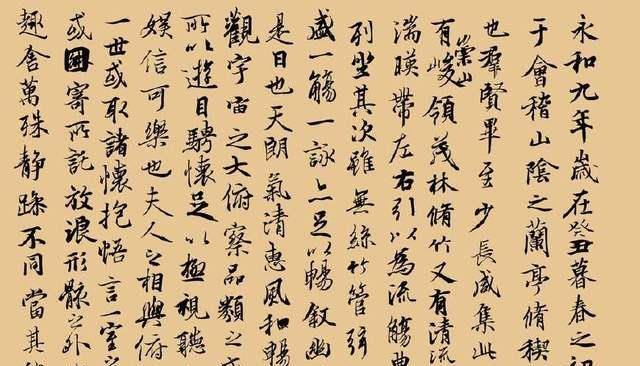 永和九年歲在癸丑暮春之初
于會稽山陰之蘭亭脩稧
也羣賢畢至少長咸集此
有崇山峻領茂林脩竹又有清流
湍暎帶左右引以為流觴曲
列坐其次雖無絲竹管弦
盛一觴一詠亦足以暢敘幽
是日也天朗氣清惠風和暢
觀宇宙之大俯察品類之盛
所以遊目騁懷足以極視聽
娛信可樂也夫人之相與俯
一世或取諸懷抱悟言一室之
或因寄所託放浪形骸之外
趣舍萬殊静躁不同當其